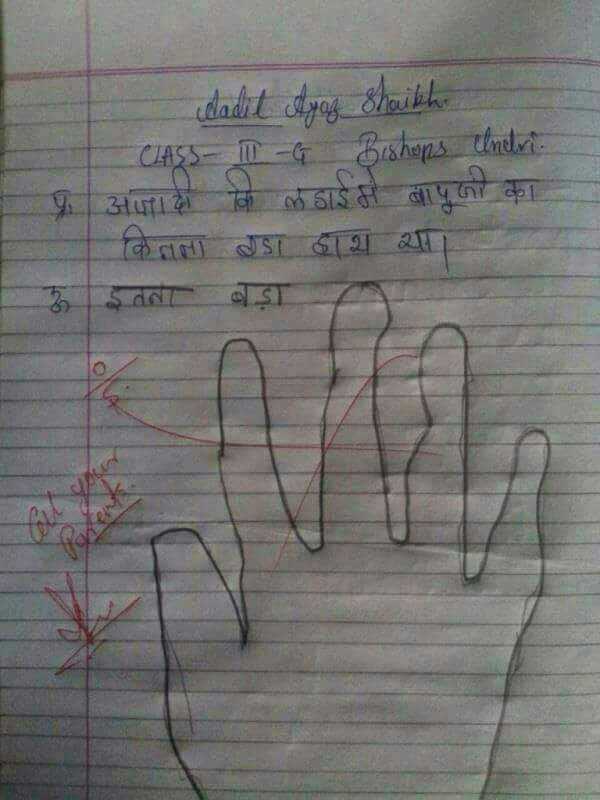 Aadil Ayaz Shaikh.
CLASS - III - G Bishops Undri.
प्र. अजादी कि लडाईमे बापूजी का
कितना बडा हाथ था।
उ. इतना बड़ा
0/5
Call your
Parents.